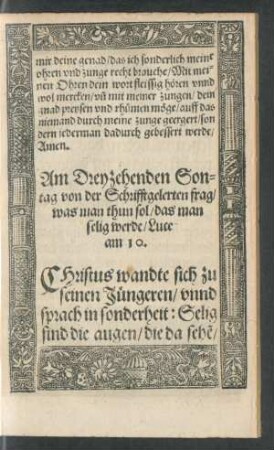 mir deine genad/das ich sonderlich meine
ohren vnd zunge recht brauche/Mit mei-
nen Ohren dein wort fleissig hören vnnd
wol mercken/vñ mit meiner zungen/dein
gnad preysen vnd rhümen möge/auff das
niemand durch meine zunge geergert/son
dern iederman dadurch gebessert werde/
Amen.
Am Dreyzehenden Son-
tag von der Schrifftgelerten frag/
was man thun sol/das man
selig werde/Luce
am 10.
CHristus wandte sich zu
seinen Jüngeren/vnnd
sprach in sonderheit: Selig
sind die augen/die da sehẽ/